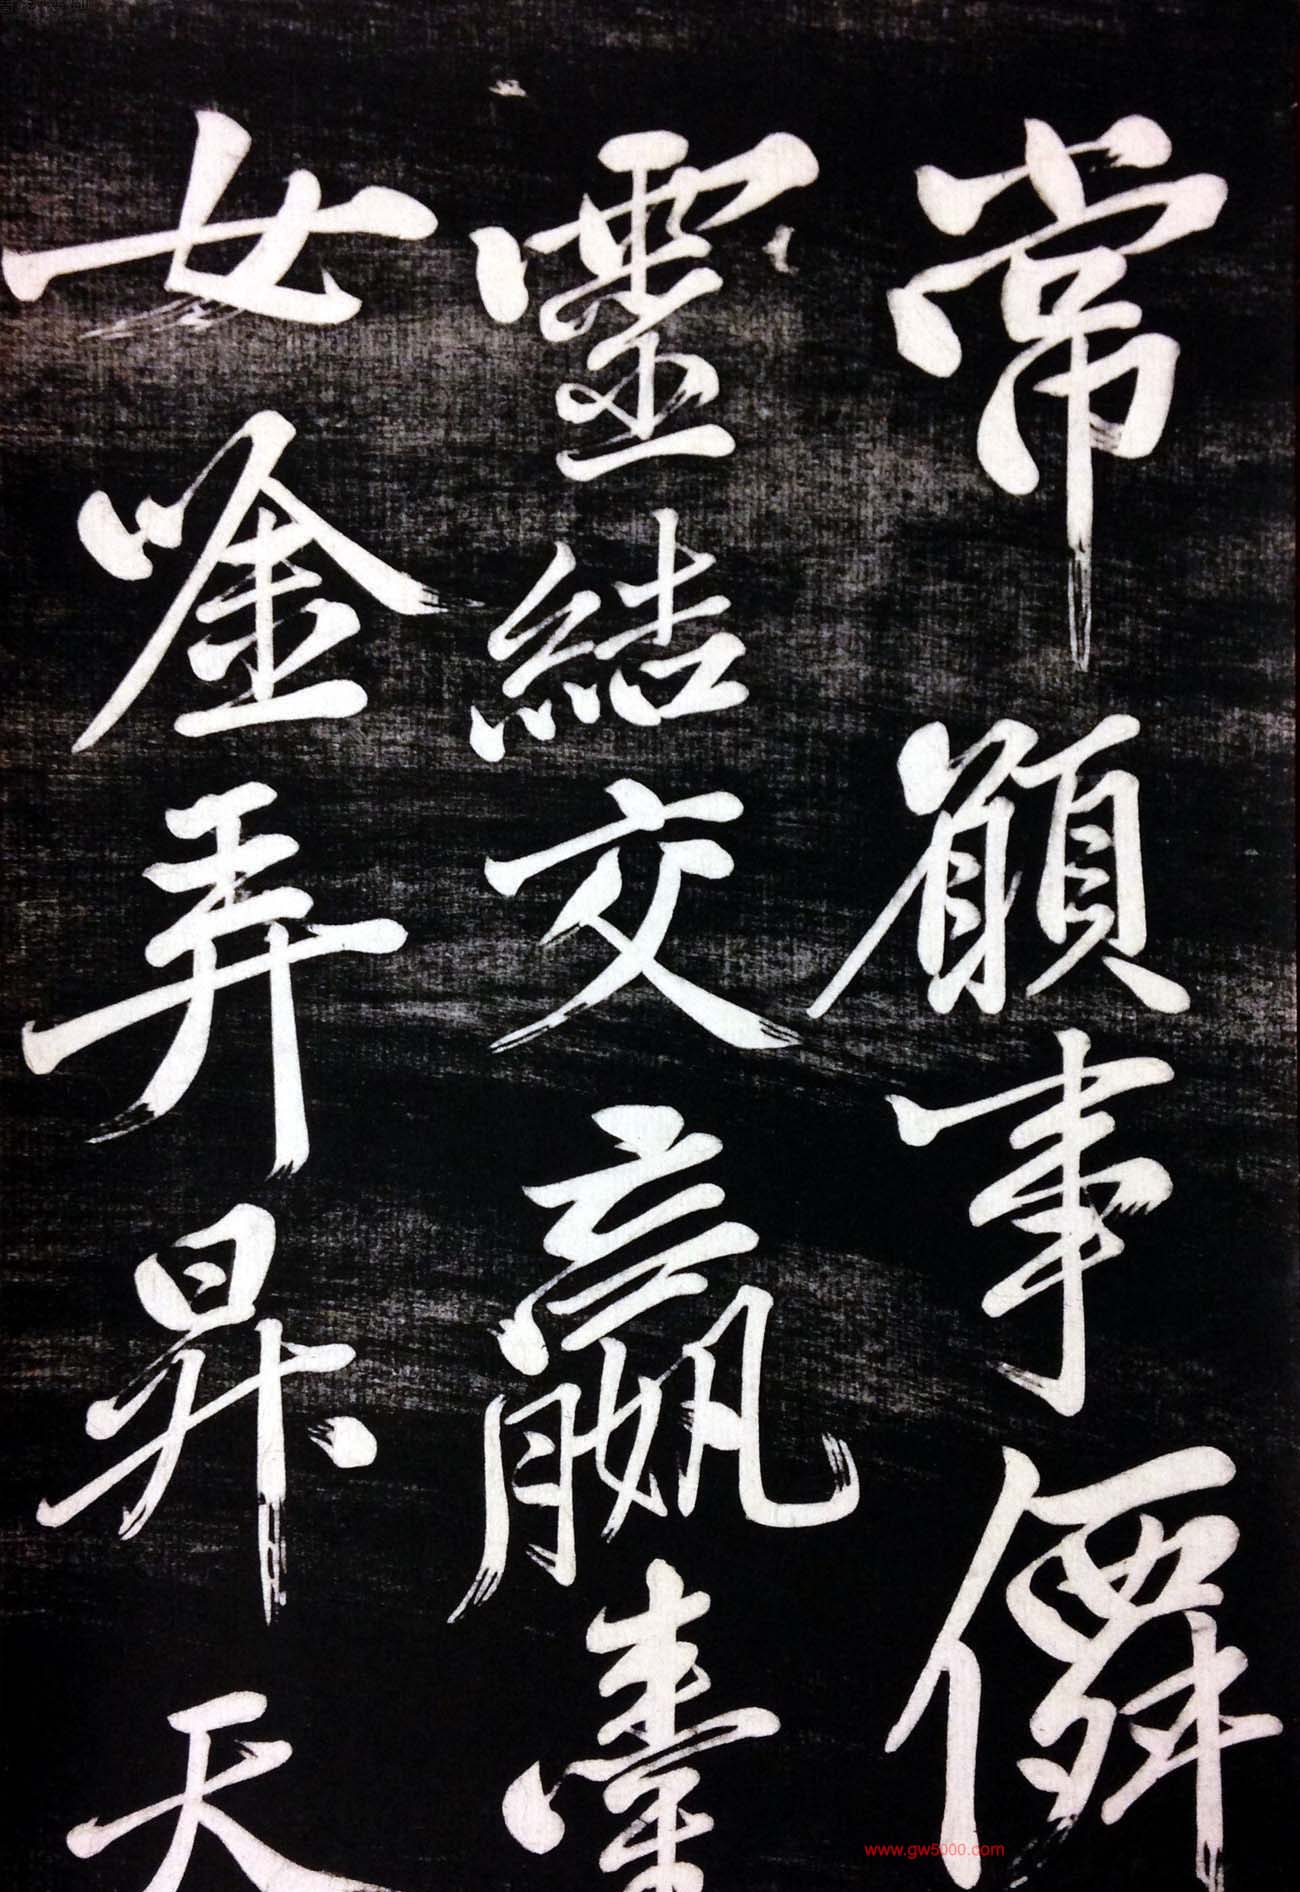 常願事僊
靈結交嬴臺
女唫弄昇天
www.gw5000.com